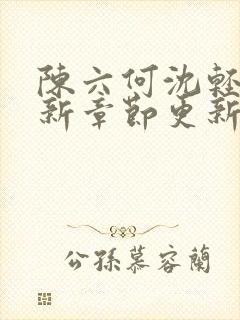 陳六何沈輕
新章節更新
公孫慕容蘭